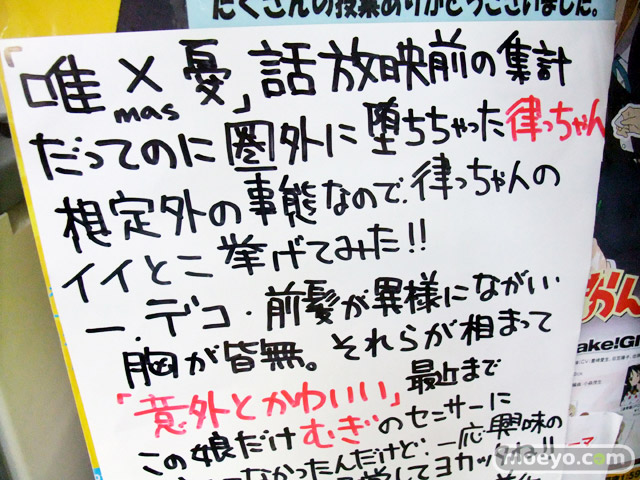 たくさんの投票ありがとうございました。
「唯×憂」話放映前の集計
mas
だってのに圏外に堕ちちゃった律っちゃん
想定外の事態なので、律っちゃんの
イイとこ挙げてみた!!
一、デコ・前髪が異様にながい
胸が皆無。それらが相まって
「意外とかわいい」最近まで
この娘だけむぎのセンサーに
なかったんだけど、一応興味の
ヨカッ
おん
ake!Gi
moeyo.com